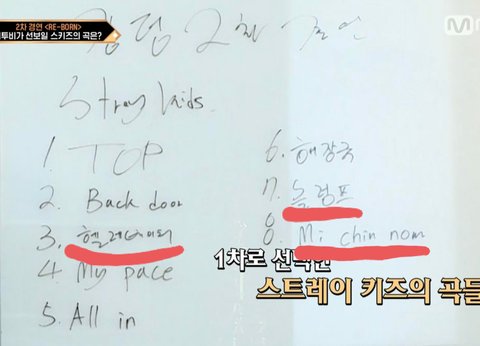 2차 경연 <RE-BORN>
투비가 선보일 스키즈의 곡은?
M
킹덤 2차 경연
Stray kids.
1 TOP
2. Back door
3. 헬레베이터
4 My pace
5. All in
6. 해장국
7. 슬럼프
8. Mi chin nom
1차로 선택한
스트레이 키즈의 곡들